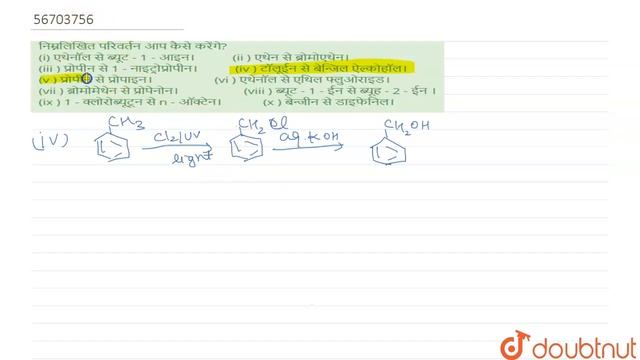 56703756
निम्नलिखित परिवर्तन आप कैसे करेंगे?
(i) एथेनॉल से ब्यूट - 1 - आइन। (ii) एथेन से ब्रोमोएथेन।
(iii) प्रोपीन से 1 - नाइट्रोप्रोपीन। (iv) टॉलूईन से बेन्जिल ऐल्कोहॉल।
(v) प्रोपीन से प्रोपाइन। (vi) एथेनॉल से एथिल फ्लुओराइड।
(vii) ब्रोमोमेथेन से प्रोपेनोन। (viii) ब्यूट - 1 - ईन से ब्यूह - 2 - ईन।
(ix) 1 - क्लोरोब्यूटून से n - ऑक्टेन। (x) बेन्जीन से डाइफेनिल।
(iv) CH3 Cl2/UV light CH2Cl aq.KOH CH2OH
doubtnut